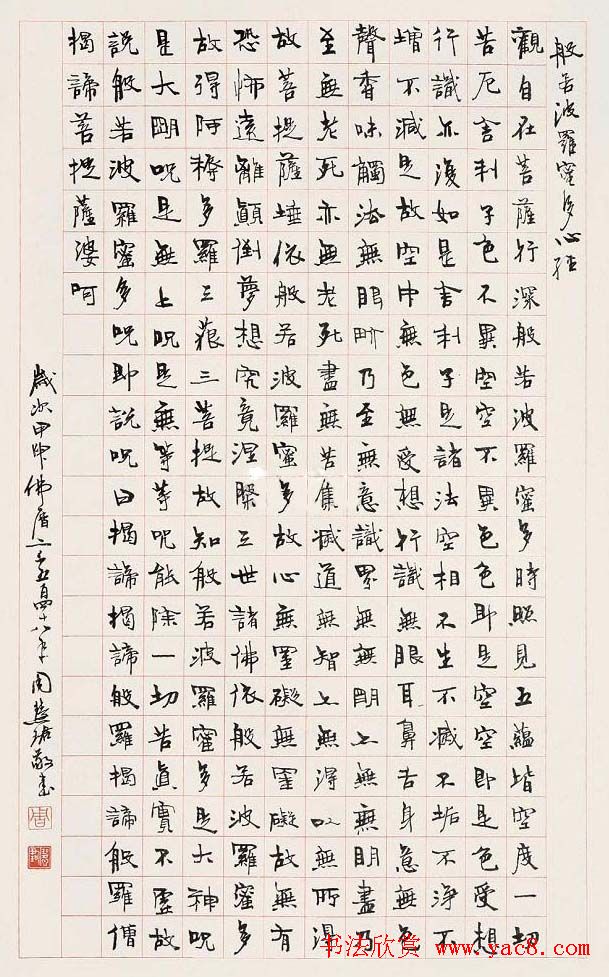 般若波羅蜜多心經
觀自在菩薩行深般若波羅蜜多時照見五蘊皆空度一切
苦厄舍利子色不異空空不異色色即是空空即是色受想
行識亦復如是舍利子是諸法空相不生不滅不垢不淨不
增不減是故空中無色無受想行識無眼耳鼻舌身意無色
聲香味觸法無眼界乃至無意識界無無明亦無無明盡乃
至無老死亦無老死盡無苦集滅道無智亦無得以無所得
故菩提薩埵依般若波羅蜜多故心無罣礙無罣礙故無有
恐怖遠離顛倒夢想究竟涅槃三世諸佛依般若波羅蜜多
故得阿耨多羅三藐三菩提故知般若波羅蜜多是大神呪
是大明呪是無上呪是無等等呪能除一切苦真實不虛故
說般若波羅蜜多呪即說呪曰揭諦揭諦般羅揭諦般羅僧
揭諦菩提薩婆呵
歲次甲申佛曆二千五百四十八年周慧珺敬書
书法欣赏 www.yac8.com